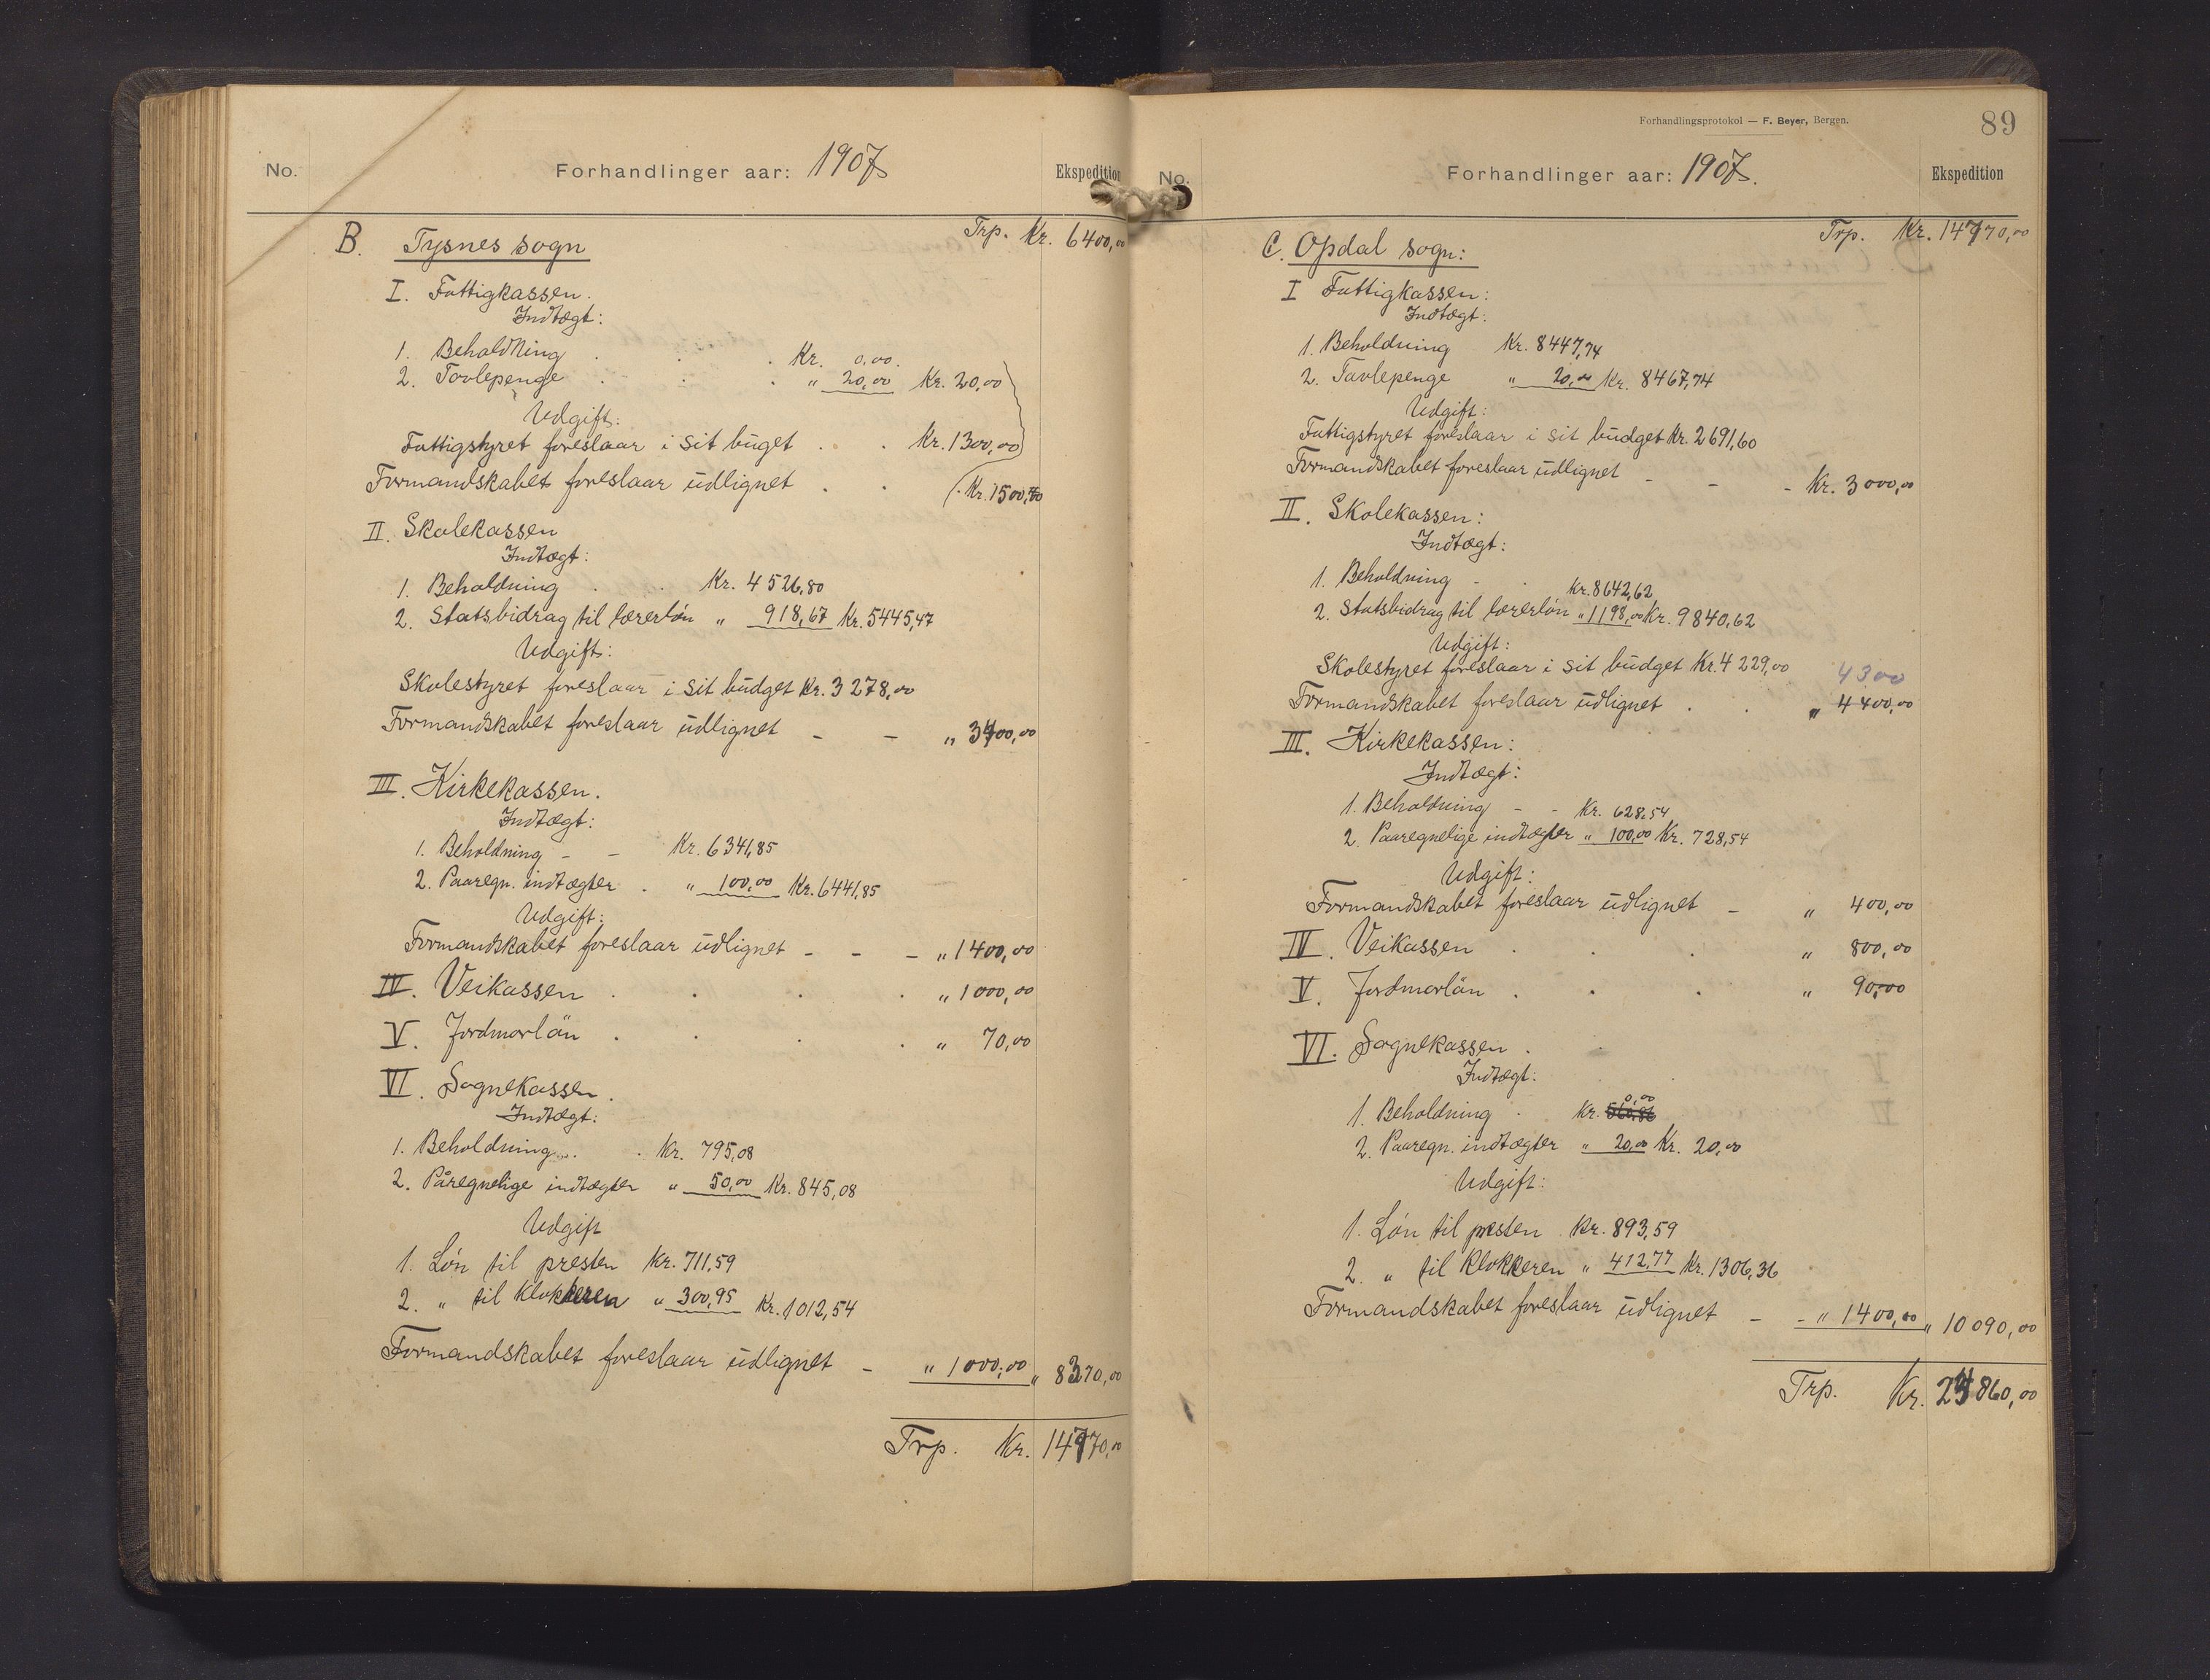 No.
Forhandlinger aar: 1907
Ekspedition
Trp. Kr. 6400,00
B. Tysnes sogn
I. Fattigkassen.
Indtægt:
1. Beholdning . . . Kr. 0,00.
2. Tavlepenge . . . " 20,00 Kr. 20,00
Udgift:
Fattigstyret foreslaar i sit buget . . Kr. 1300,00
Formandskabet foreslaar udlignet . . Kr. 1500,00
II. Skolekassen
Indtægt:
1. Beholdning . . Kr. 4526,80
2. Statsbidrag til lærerløn " 918,67 Kr. 5445,47
Udgift:
Skolestyret foreslaar i sit budget Kr. 3278,00
Formandskabet foreslaar udlignet - - " 3400,00
III. Kirkekassen.
Indtægt:
1. Beholdning - - Kr. 6341,85
2. Paaregn. indtægter . " 100,00 Kr. 6441,85
Udgift:
Formandskabet foreslaar udlignet - - - " 1400,00
IV. Veikassen . . . . " 1000,00
V. Jordmorløn . . . " 70,00
VI. Sognekassen.
Indtægt:
1. Beholdning . . Kr. 795,08
2. Påregnelige indtægter " 50,00 Kr. 845,08
Udgift
1. Løn til presten Kr. 711,59
2. " til klokkeren " 300,95 Kr. 1012,54
Formandskabet foreslaar udlignet - " 1000,00 " 8370,00
Trp. Kr. 14770,00
Forhandlingsprotokol — F. Beyer, Bergen.
89
No.
Forhandlinger aar: 1907.
Ekspedition
Trp. Kr. 14770,00
C. Opdal sogn:
I Fattigkassen:
Indtægt:
1. Beholdning Kr. 8447,74
2. Tavlepenge " 20,00 Kr. 8467,74
Udgift:
Fattigstyret foreslaar i sit budget Kr. 2691,60
Formandskabet foreslaar udlignet - - - Kr. 3000,00
II. Skolekassen:
Indtægt:
1. Beholdning - . Kr. 8642,62
2. Statsbidrag til lærerløn " 1198,00 Kr. 9840,62
Udgift:
Skolestyret foreslaar i sit budget Kr. 4229,00 4300
Formandskabet foreslaar udlignet . . " 4400,00
III. Kirkekassen:
Indtægt:
1. Beholdning - - Kr. 628,54
2. Paaregnelige indtægter " 100,00 Kr. 728,54
Udgift:
Formandskabet foreslaar udlignet - " 400,00
IV. Veikassen . . . " 800,00
V. Jordmorlån . . . " 90,00
VI. Sognekassen.
Indtægt:
0,00
1. Beholdning . Kr. 560,86
2. Paaregn. indtægter " 20,00 Kr. 20,00
Udgift:
1. Løn til presten Kr. 893,59
2. " til klokkeren " 412,77 Kr. 1306,36
Formandskabet foreslaar udlignet - - " 1400,00 " 10090,00
Trp. Kr. 24860,00